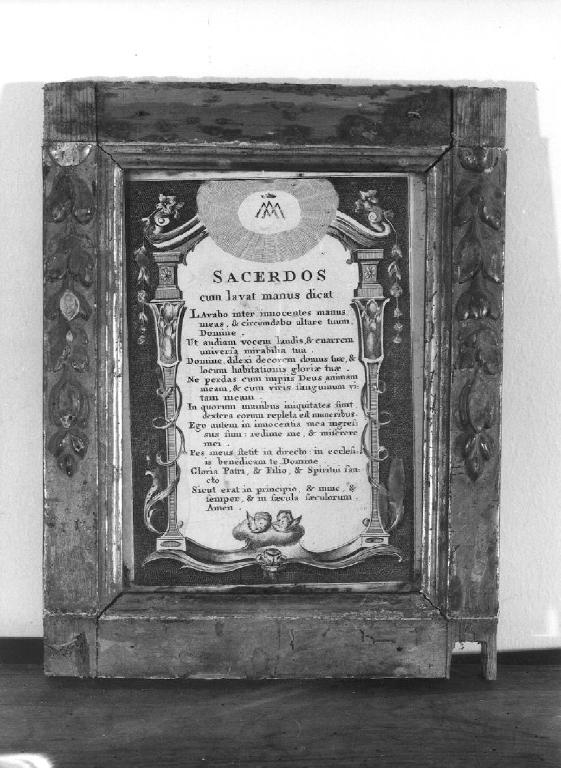 SACERDOS
cum lavat manus dicat
LAvabo inter innocentes manus
meas, & circumdabo altare tuum,
Domine.
Ut audiam vocem laudis, & enarrem
universa mirabilia tua.
Domine, dilexi decorem domus tuæ, &
locum habitationis gloriæ tuæ.
Ne perdas cum impiis Deus animam
meam, & cum viris sanguinum vi-
tam meam
In quorum manibus iniquitates sunt
dextera eorum repleta est muneribus.
Ego autem in innocentia mea ingres-
sus sum: redime me, & miserere
mei.
Pes meus stetit in directo: in ecclesi-
is benedicam te Domine.
Gloria Patri, & Filio, & Spiritui san-
cto.
Sicut erat in principio, & nunc, &
semper, & in sæcula sæculorum.
Amen.